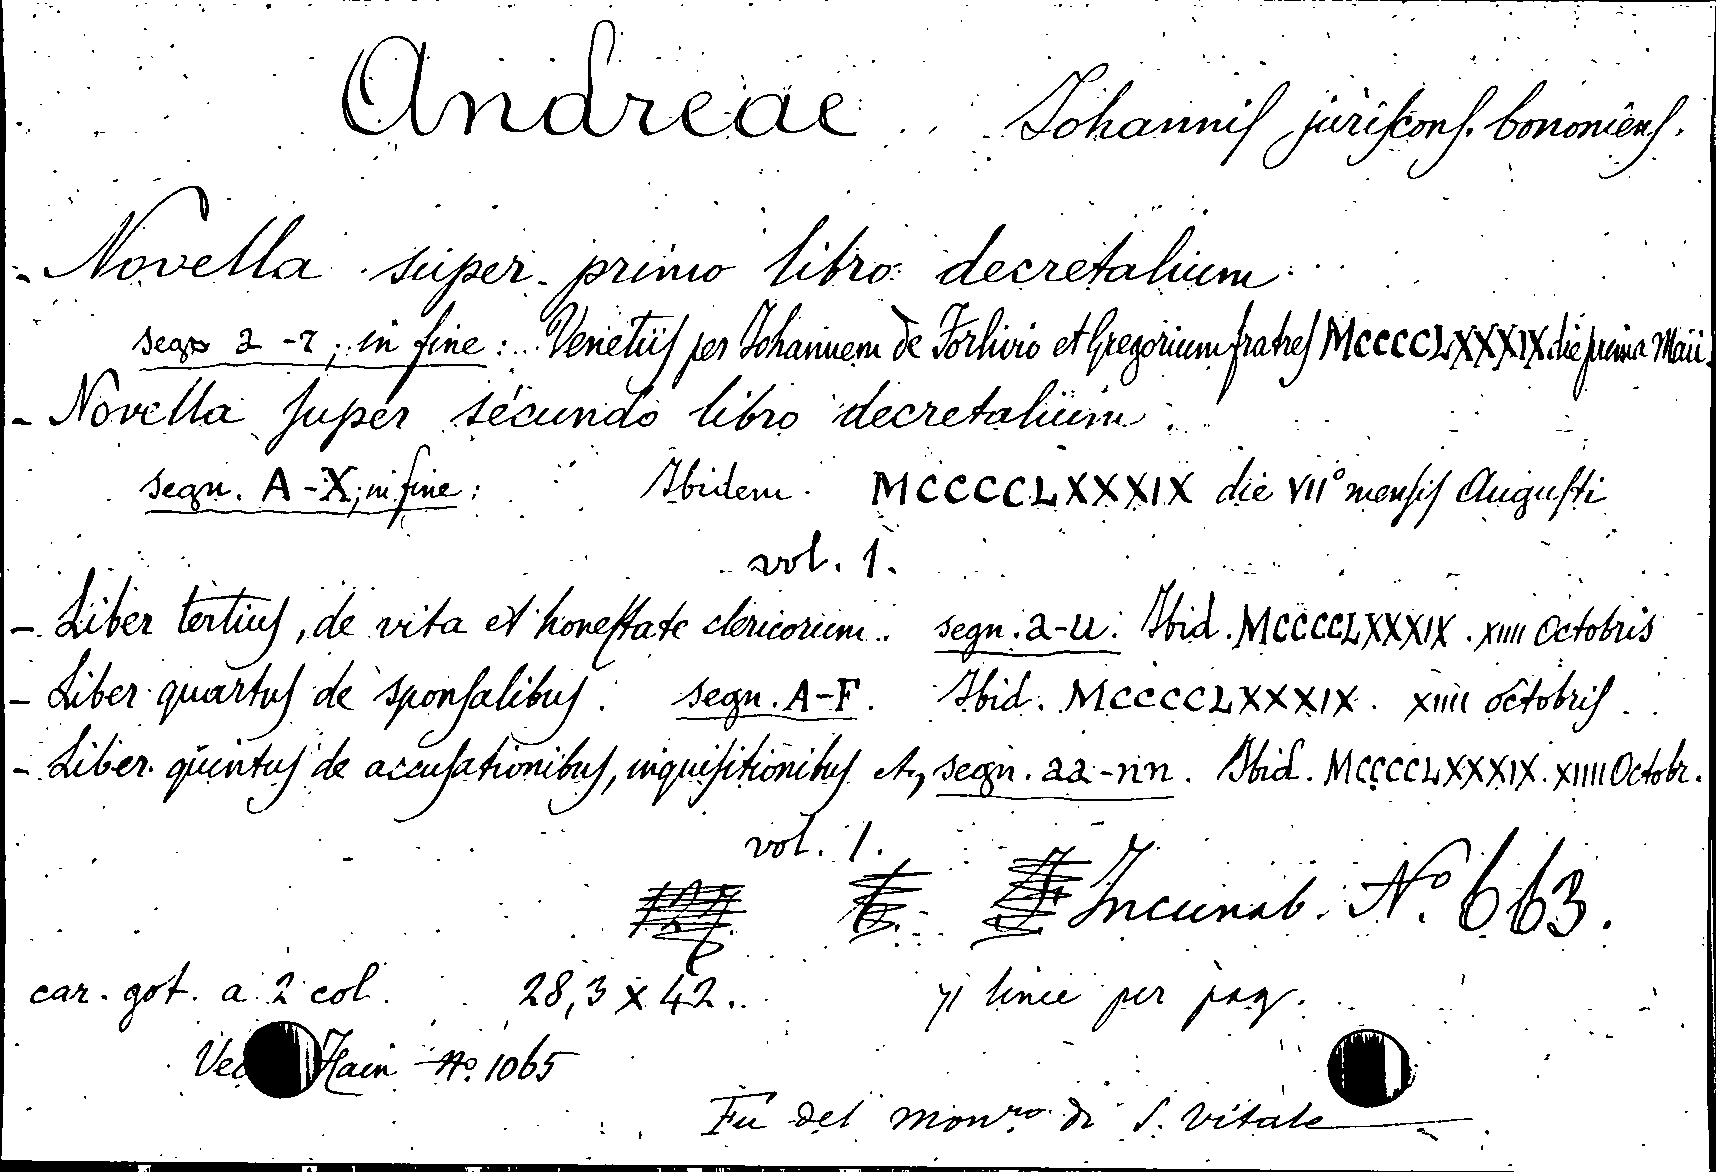 Andreae Johannis juriscons. bononiens.
- Novella super primo libro decretalium
segn a - z; in fine: Venetiis per Johannem de Forlivio et Gregorium fratres MCCCCLXXXIX die prima Maii.
- Novella super secundo libro decretalium.
segn. A - X; in fine: Ibidem. MCCCCLXXXIX die VII° mensis Augusti
vol. 1.
- Liber tertius, de vita et honestate clericorum. segn. a-u. Ibid. MCCCCLXXXIX. XIIII Octobris
- Liber quartus de sponsalibus. segn. A-F. Ibid. MCCCCLXXXIX. XIIII octobris
- Liber quintus de accusationibus, inquisitionibus etc, segn. aa-nn. Ibid. MCCCCLXXXIX. XIIII Octobr.
vol. 1.
Incunab. N.° 663.
car. got. a 2 col. 28,3 x 42. 71 linee per pag.
Hain N.° 1065
Fu del Mon.ro di S. Vitale